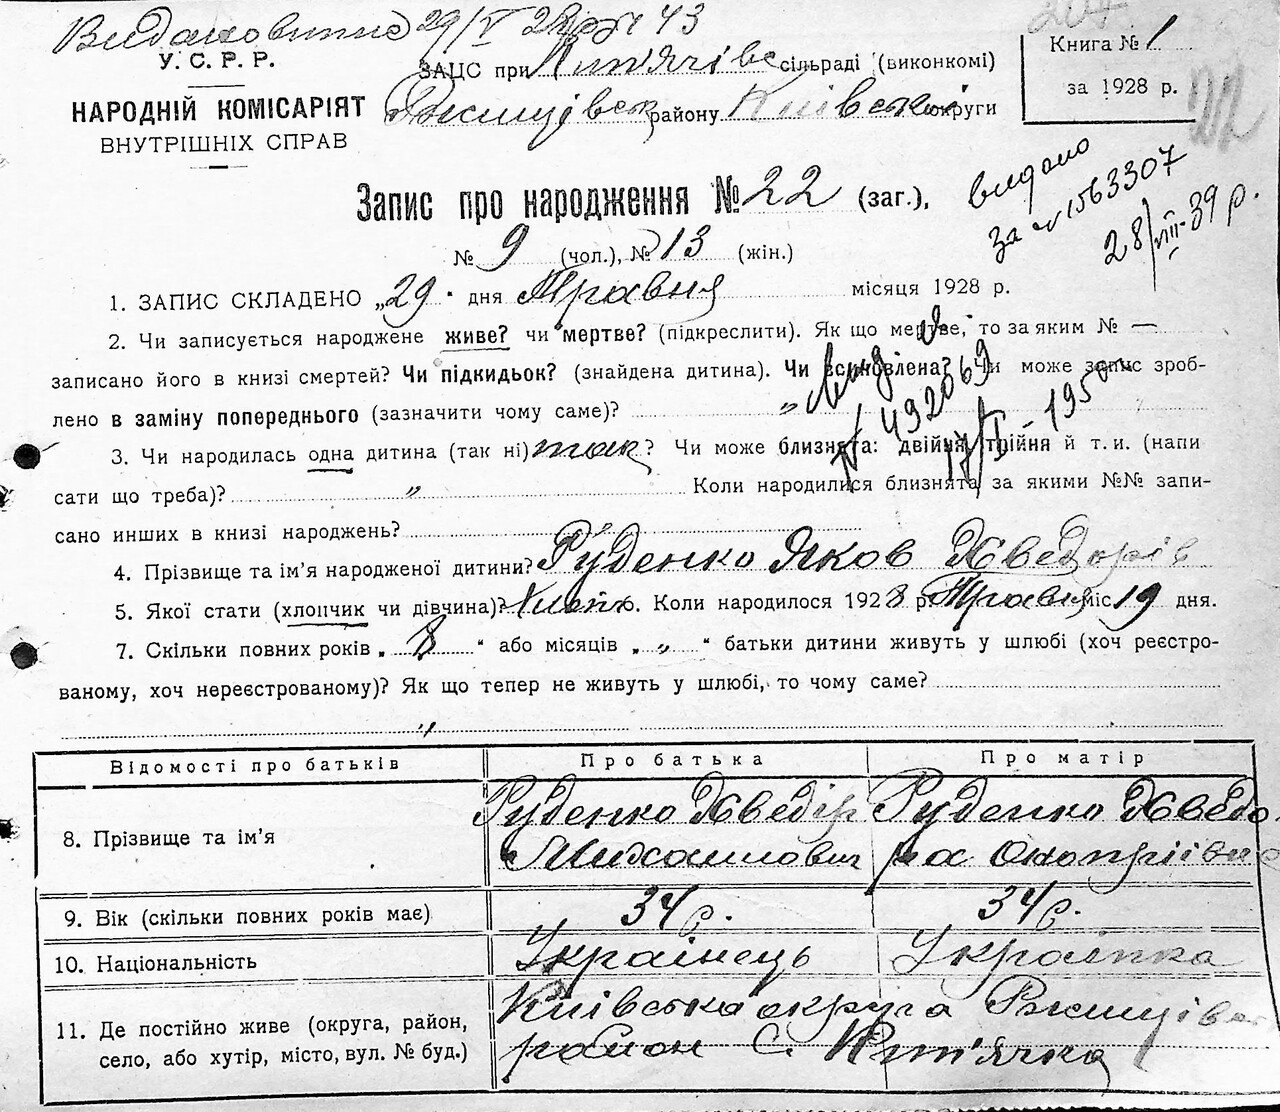 29/V
43
У. С. Р. Р.
НАРОДНІЙ КОМІСАРІЯТ
ВНУТРІШНІХ СПРАВ
ЗАЦС при сільраді (виконкомі)
району Київської округи
Книга № 1
за 1928 р.
Запис про народження № 22 (заг.),
№ 9 (чол.), № 13 (жін.)
видано
за № 1563307
28/VIII-39 р.
1. ЗАПИС СКЛАДЕНО „29" дня Травня місяця 1928 р.
2. Чи записується народжене живе? чи мертве? (підкреслити). Як що мертве, то за яким № —
записано його в книзі смертей? Чи підкидьок? (знайдена дитина). Чи всиновлена? Чи може запис зроб-
лено в заміну попереднього (зазначити чому саме)? „
№ 492069
17/I - 195
3. Чи народилась одна дитина (так ні) так? Чи може близнята: двійня, трійня й т. и. (напи
сати що треба)? „ Коли народилися близнята за якими №№ запи-
сано инших в книзі народжень? „
4. Прізвище та ім'я народженої дитини? Руденко Яков Хведорів
5. Якої стати (хлопчик чи дівчина)? Хлоп. 6. Коли народилося 1928 р. Травня міс 19 дня.
7. Скільки повних років „ 8 " або місяців „ „ " батьки дитини живуть у шлюбі (хоч реєстро-
ваному, хоч нереєстрованому)? Як що тепер не живуть у шлюбі, то чому саме?
„
Відомості про батьків Про батька Про матір
8. Прізвище та ім'я Руденко Хведір Михайлович Руденко Хведора Оноприівна
9. Вік (скільки повних років має) 34 р. 34 р.
10. Національність Українець Українка
11. Де постійно живе (округа, район, Київська округа Ржищівськ
село, або хутір, місто, вул. № буд.) район С. Кип'ячка